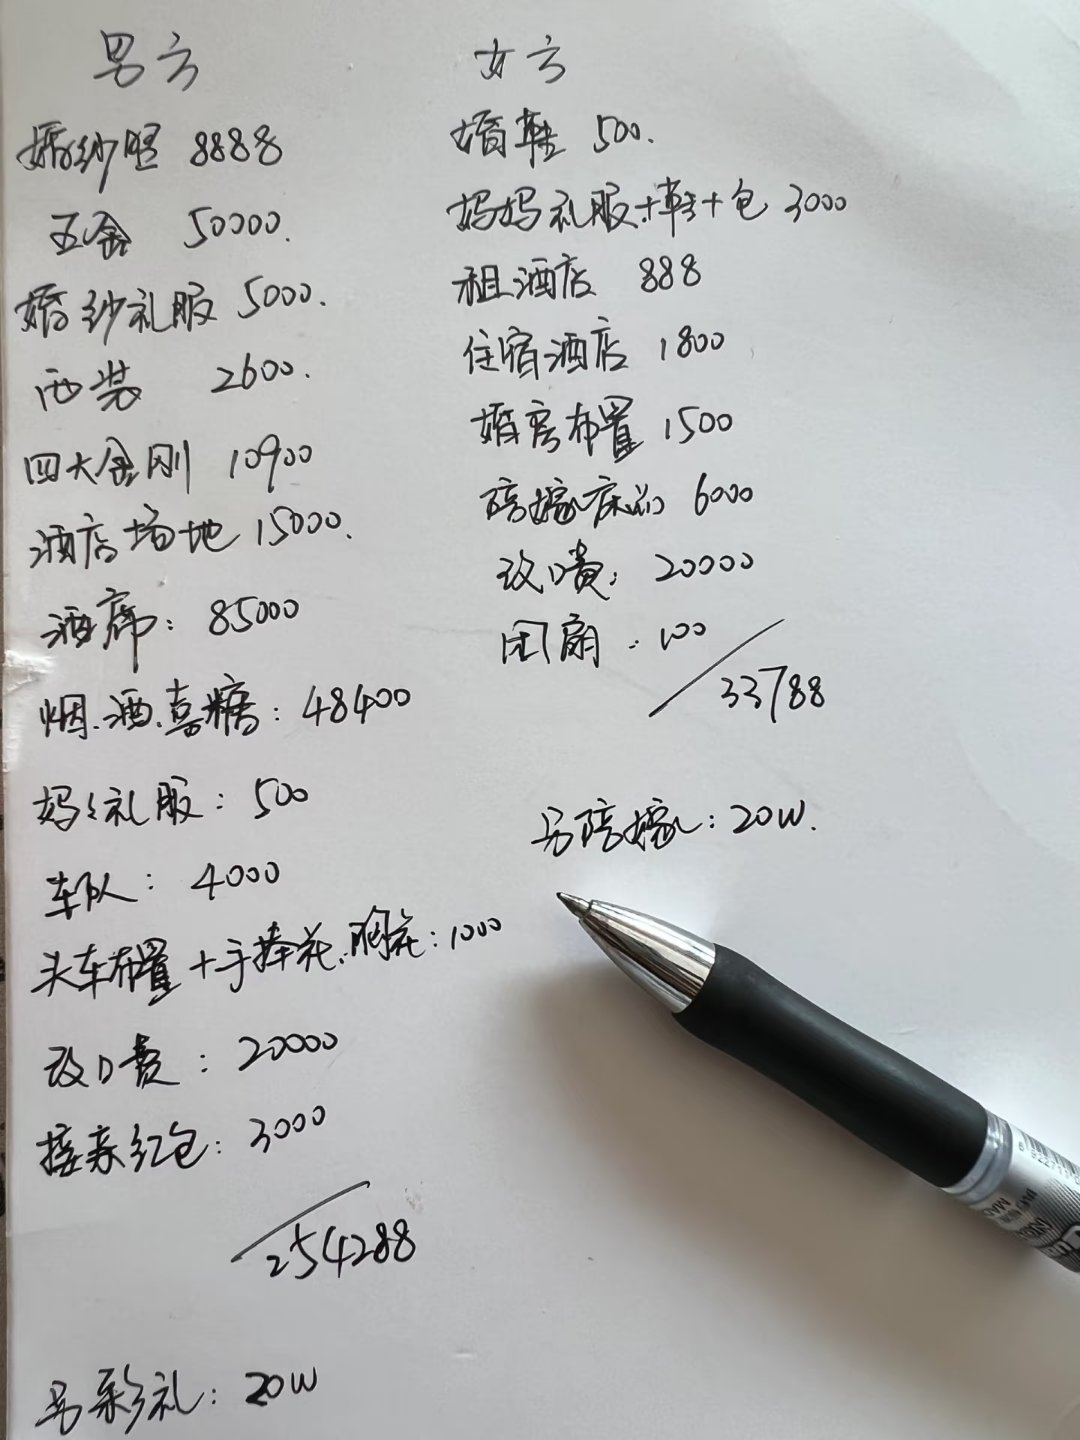 男方
婚纱照 8888
五金 50000.
婚纱礼服 5000.
西装 2600.
四大金刚 10900
酒店场地 15000.
酒席: 85000
烟.酒.喜糖: 48400
妈妈礼服: 500
车队: 4000
头车布置+手捧花.胸花: 1000
改口费: 20000
接亲红包: 3000
254288
另彩礼: 20W
女方
婚鞋 500.
妈妈礼服+鞋+包 3000
租酒店 888
住宿酒店 1800
婚房布置 1500
陪嫁床品 6000
改口费: 20000
团扇: 100
33788
另陪嫁: 20W.